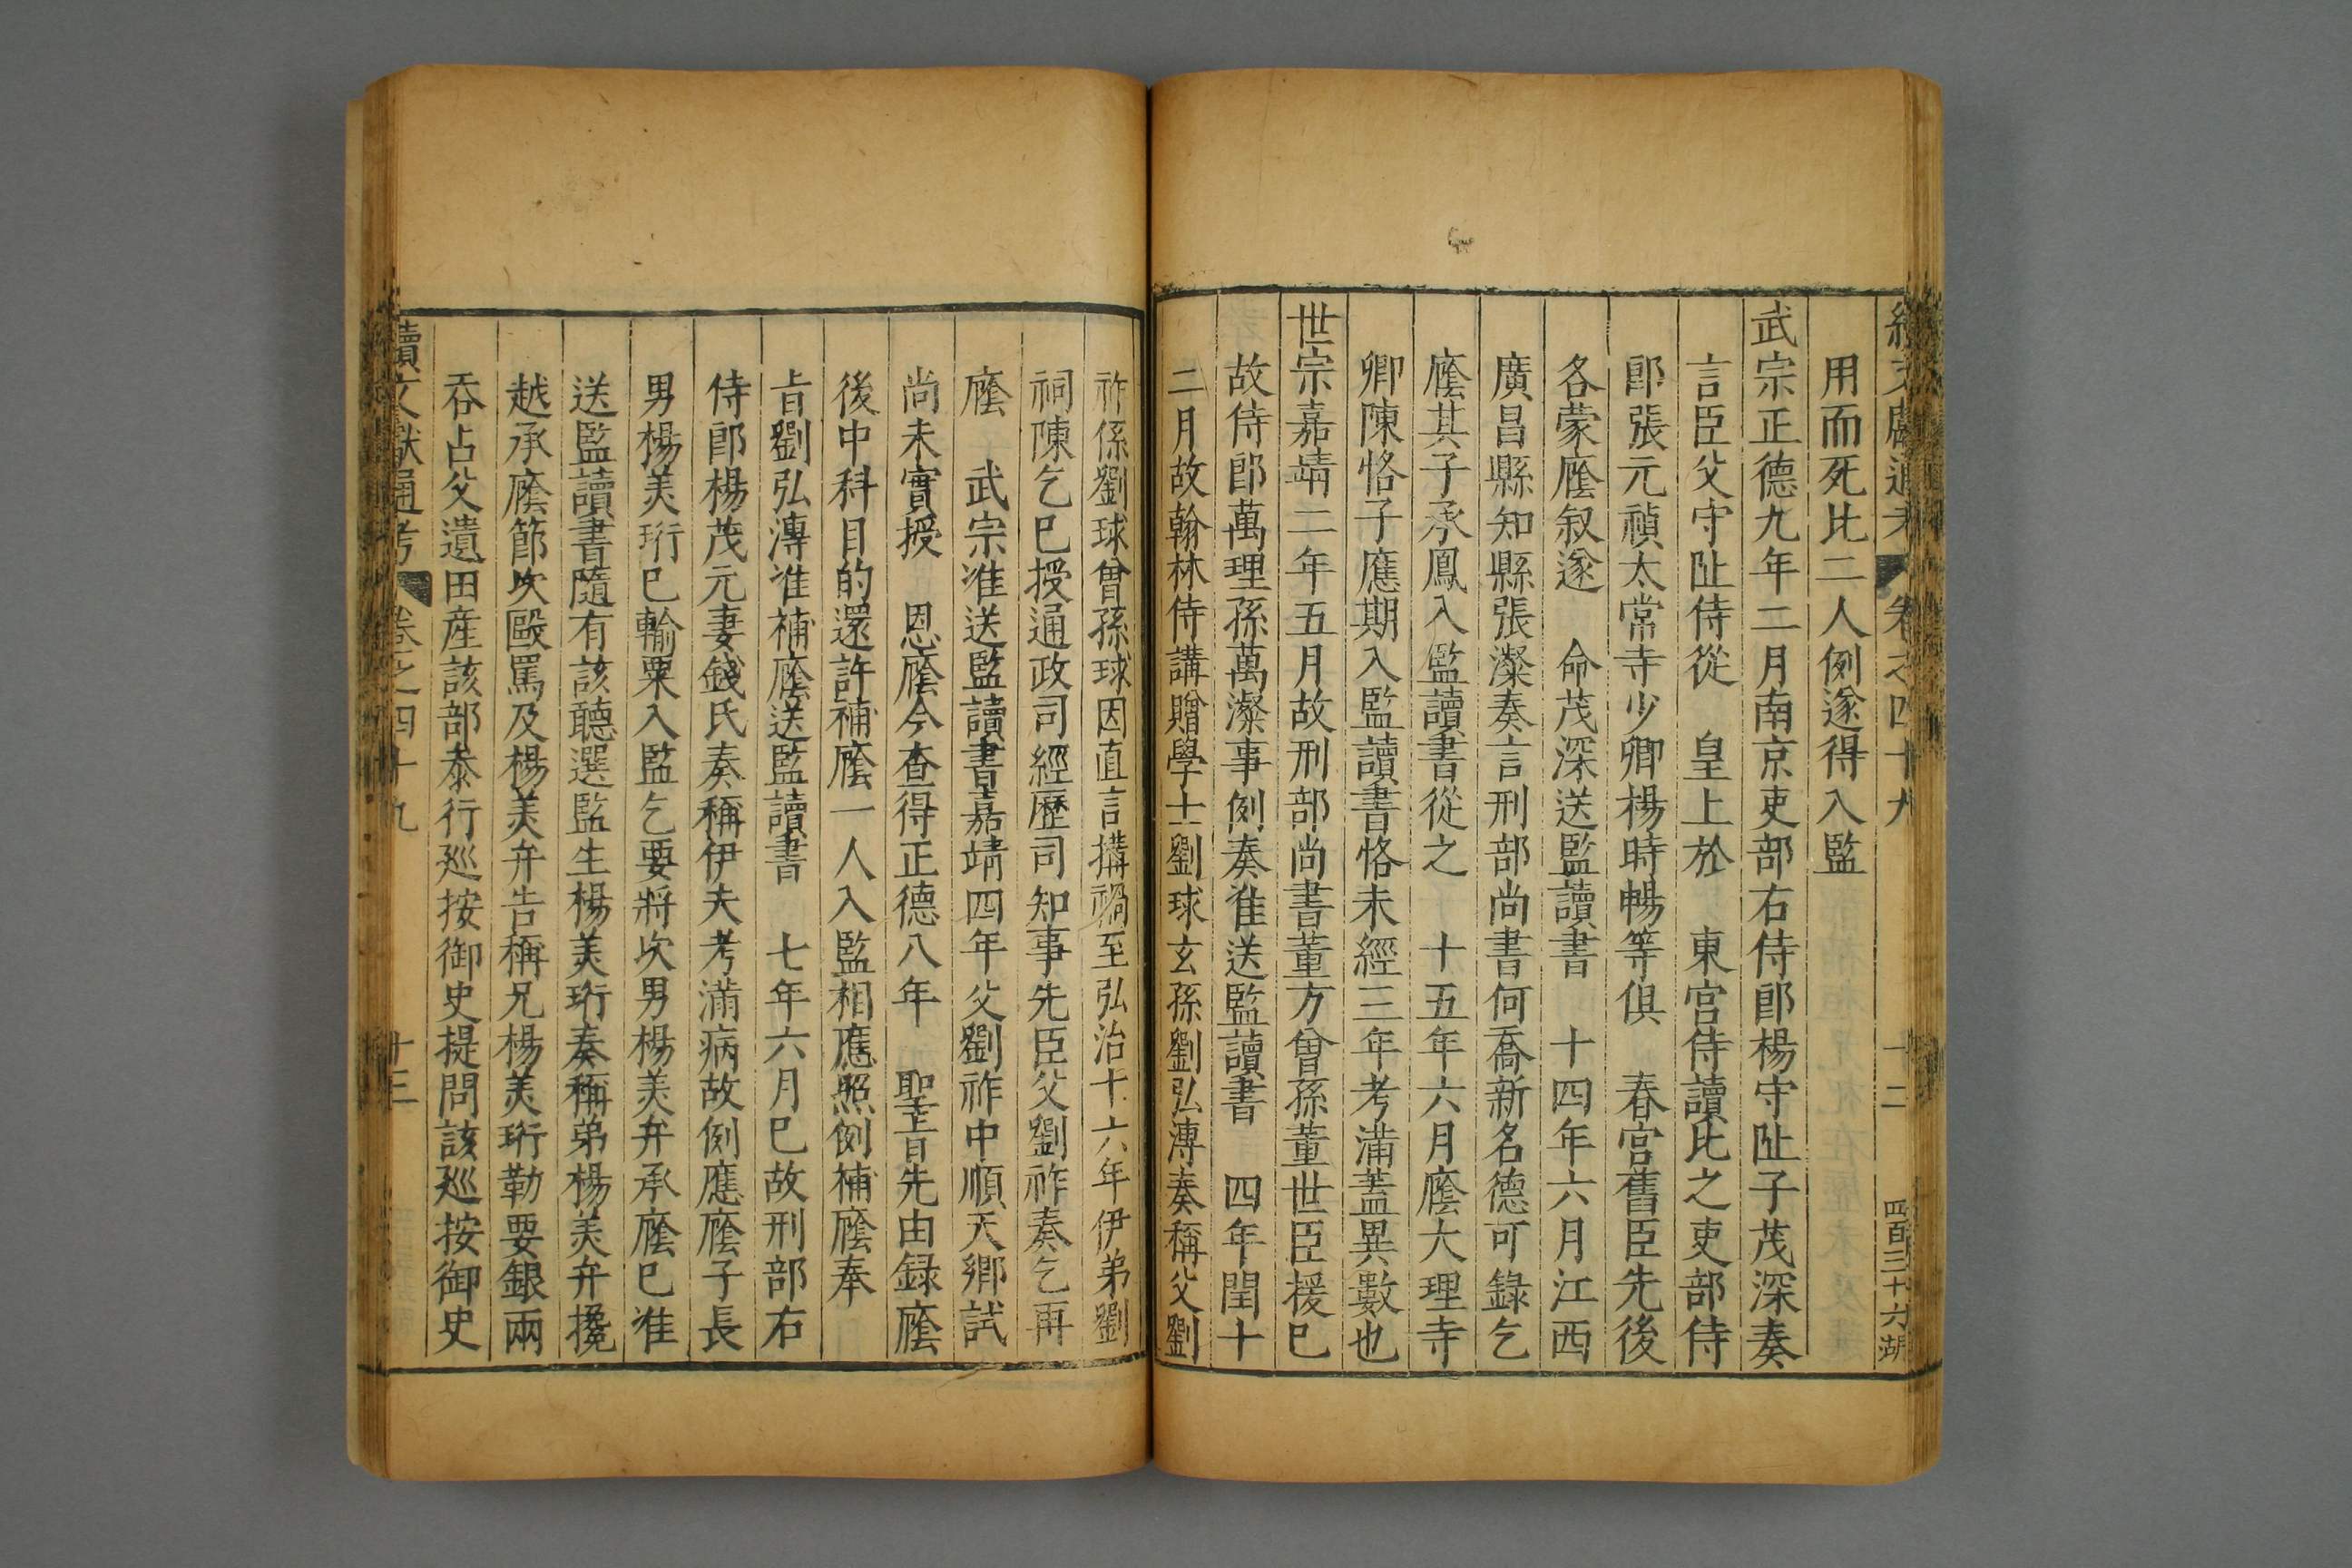 續文獻通考 卷之四十九 十二 四百三十六 湖
用而死比二人例遂得入監
武宗正德九年二月南京吏部右侍郎楊守阯子茂深奏
言臣父守阯侍從 皇上於 東宮侍讀比之吏部侍
郎張元禎太常寺少卿楊時暢等俱 春宮舊臣先後
各蒙廕叙遂 命茂深送監讀書 十四年六月江西
廣昌縣知縣張潔奏言刑部尚書何喬新名德可錄乞
廕其子承鳳入監讀書從之 十五年六月廕大理寺
卿陳恪子應期入監讀書恪未經三年考滿蓋異數也
世宗嘉靖二年五月故刑部尚書董方曾孫董世臣援巳
故侍郎萬理孫萬潔事例奏准送監讀書 四年閏十
二月故翰林侍講贈學士劉球玄孫劉弘溥奏稱父劉
祚係劉球曾孫球因直言搆禍至弘治十六年伊弟劉
祠陳乞巳授通政司經歷司知事先臣父劉祚奏乞再
廕 武宗准送監讀書嘉靖四年父劉祚中順天鄉試
尚未實授 恩廕今查得正德八年 聖旨先由錄廕
後中科目的還許補廕一人入監相應照例補廕奉
旨劉弘溥准補廕送監讀書 七年六月巳故刑部右
侍郎楊茂元妻錢氏奏稱伊夫考滿病故例應廕子長
男楊美珩巳輸粟入監乞要將次男楊美弁承廕巳准
送監讀書隨有該聽選監生楊美珩奏稱弟楊美弁攙
越承廕節次毆罵及楊美弁告稱兄楊美珩勒要銀兩
吞占父遺田產該部泰行廵按御史提問該廵按御史
續文獻通考 卷之四十九 十三